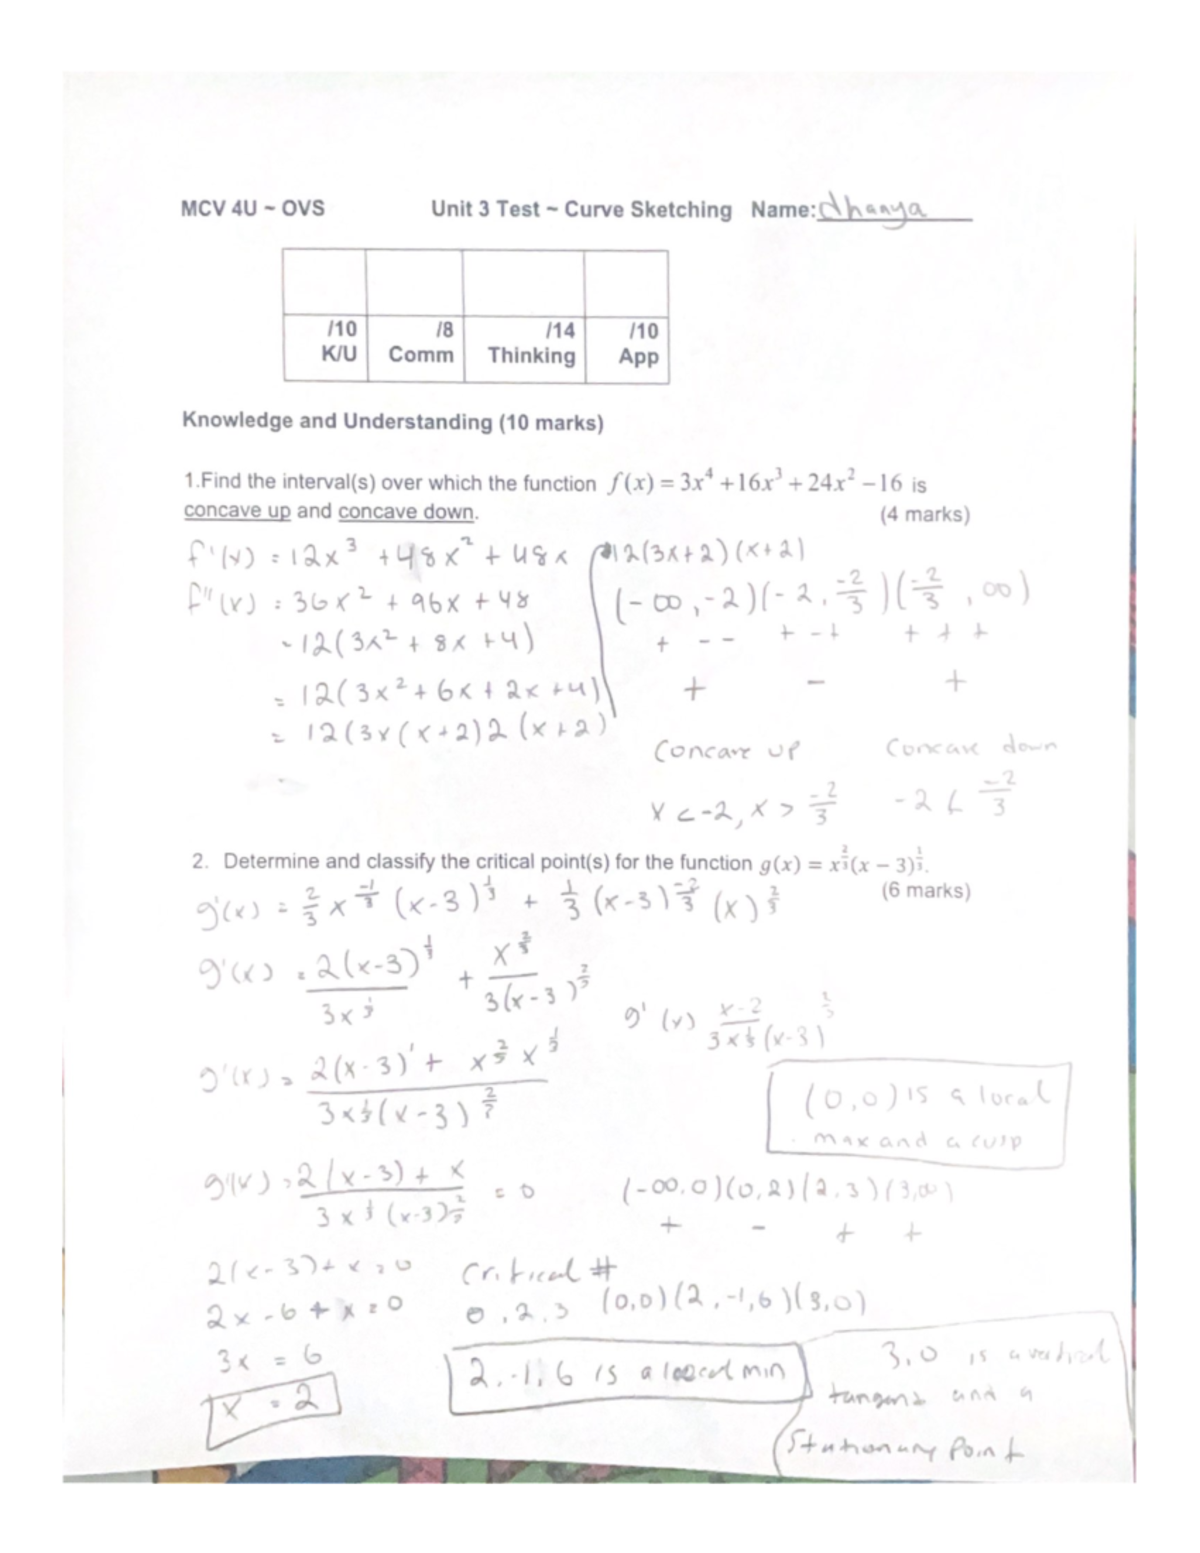 MCV 4U ~ OVS Unit 3 Test ~ Curve Sketching Name: dhanya
/10 /8 /14 /10
K/U Comm Thinking App
Knowledge and Understanding (10 marks)
1.Find the interval(s) over which the function f(x) = 3x⁴ +16x³ + 24x² − 16 is
concave up and concave down. (4 marks)
f'(x) = 12x³ + 48x² + 48x
f''(x) = 36x² + 96x + 48
= 12(3x² + 8x + 4)
= 12(3x² + 6x + 2x + 4)
= 12(3x(x+2)2(x+2)
12(3x+2)(x+2)
(-∞,-2)(-2,-2/3)(-2/3,∞)
+ - - + - + + + +
+ - +
Concave up Concave down
x < -2, x > -2/3 -2 < -2/3
2. Determine and classify the critical point(s) for the function g(x) = x^(2/3)(x − 3)^(1/3).
(6 marks)
g'(x) = 2/3 x^(-1/3) (x-3)^(1/3) + 1/3 (x-3)^(-2/3) (x)^(2/3)
g'(x) = 2(x-3)^(1/3) / 3x^(1/3) + x^(2/3) / 3(x-3)^(2/3)
g'(x) = 2(x-3)' + x^(2/3) x^(1/3) / 3x^(1/3)(x-3)^(2/3)
g'(x) = 2(x-3) + x / 3x^(1/3)(x-3)^(2/3) = 0
2(x-3) + x = 0
2x - 6 + x = 0
3x = 6
x = 2
g'(x) x-2 / 3x^(1/3)(x-3)^(2/3)
(0,0) is a local
max and a cusp
(-∞,0)(0,2)(2,3)(3,∞)
+ - + +
Critical #
0, 2, 3 (0,0)(2,-1,6)(3,0)
2,-1,6 is a local min
3,0 is a vertical
tangent and a
Stationary Point